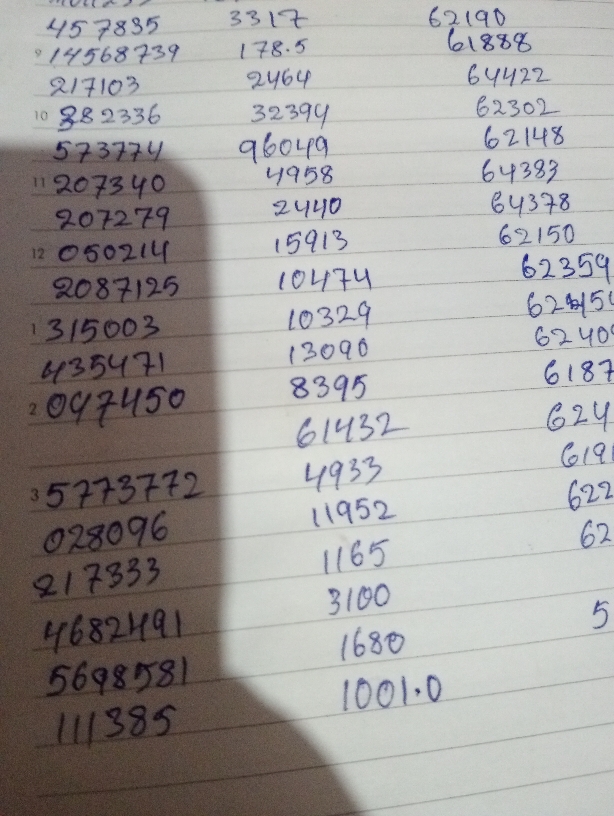 457835 3317 62190
9 14568739 178.5 61888
217103 2464 64422
10 382336 32394 62302
573774 96049 62148
11 207340 4958 64383
207279 2440 64378
12 050214 15913 62150
2087125 10474 62359
1 315003 10329
435471 13090 6240
2 047450 8395 6187
61432 624
3 5773772 4933 619
028096 11952 622
217333 1165 62
4682491 3100
5698581 1680 5
111385 1001.0